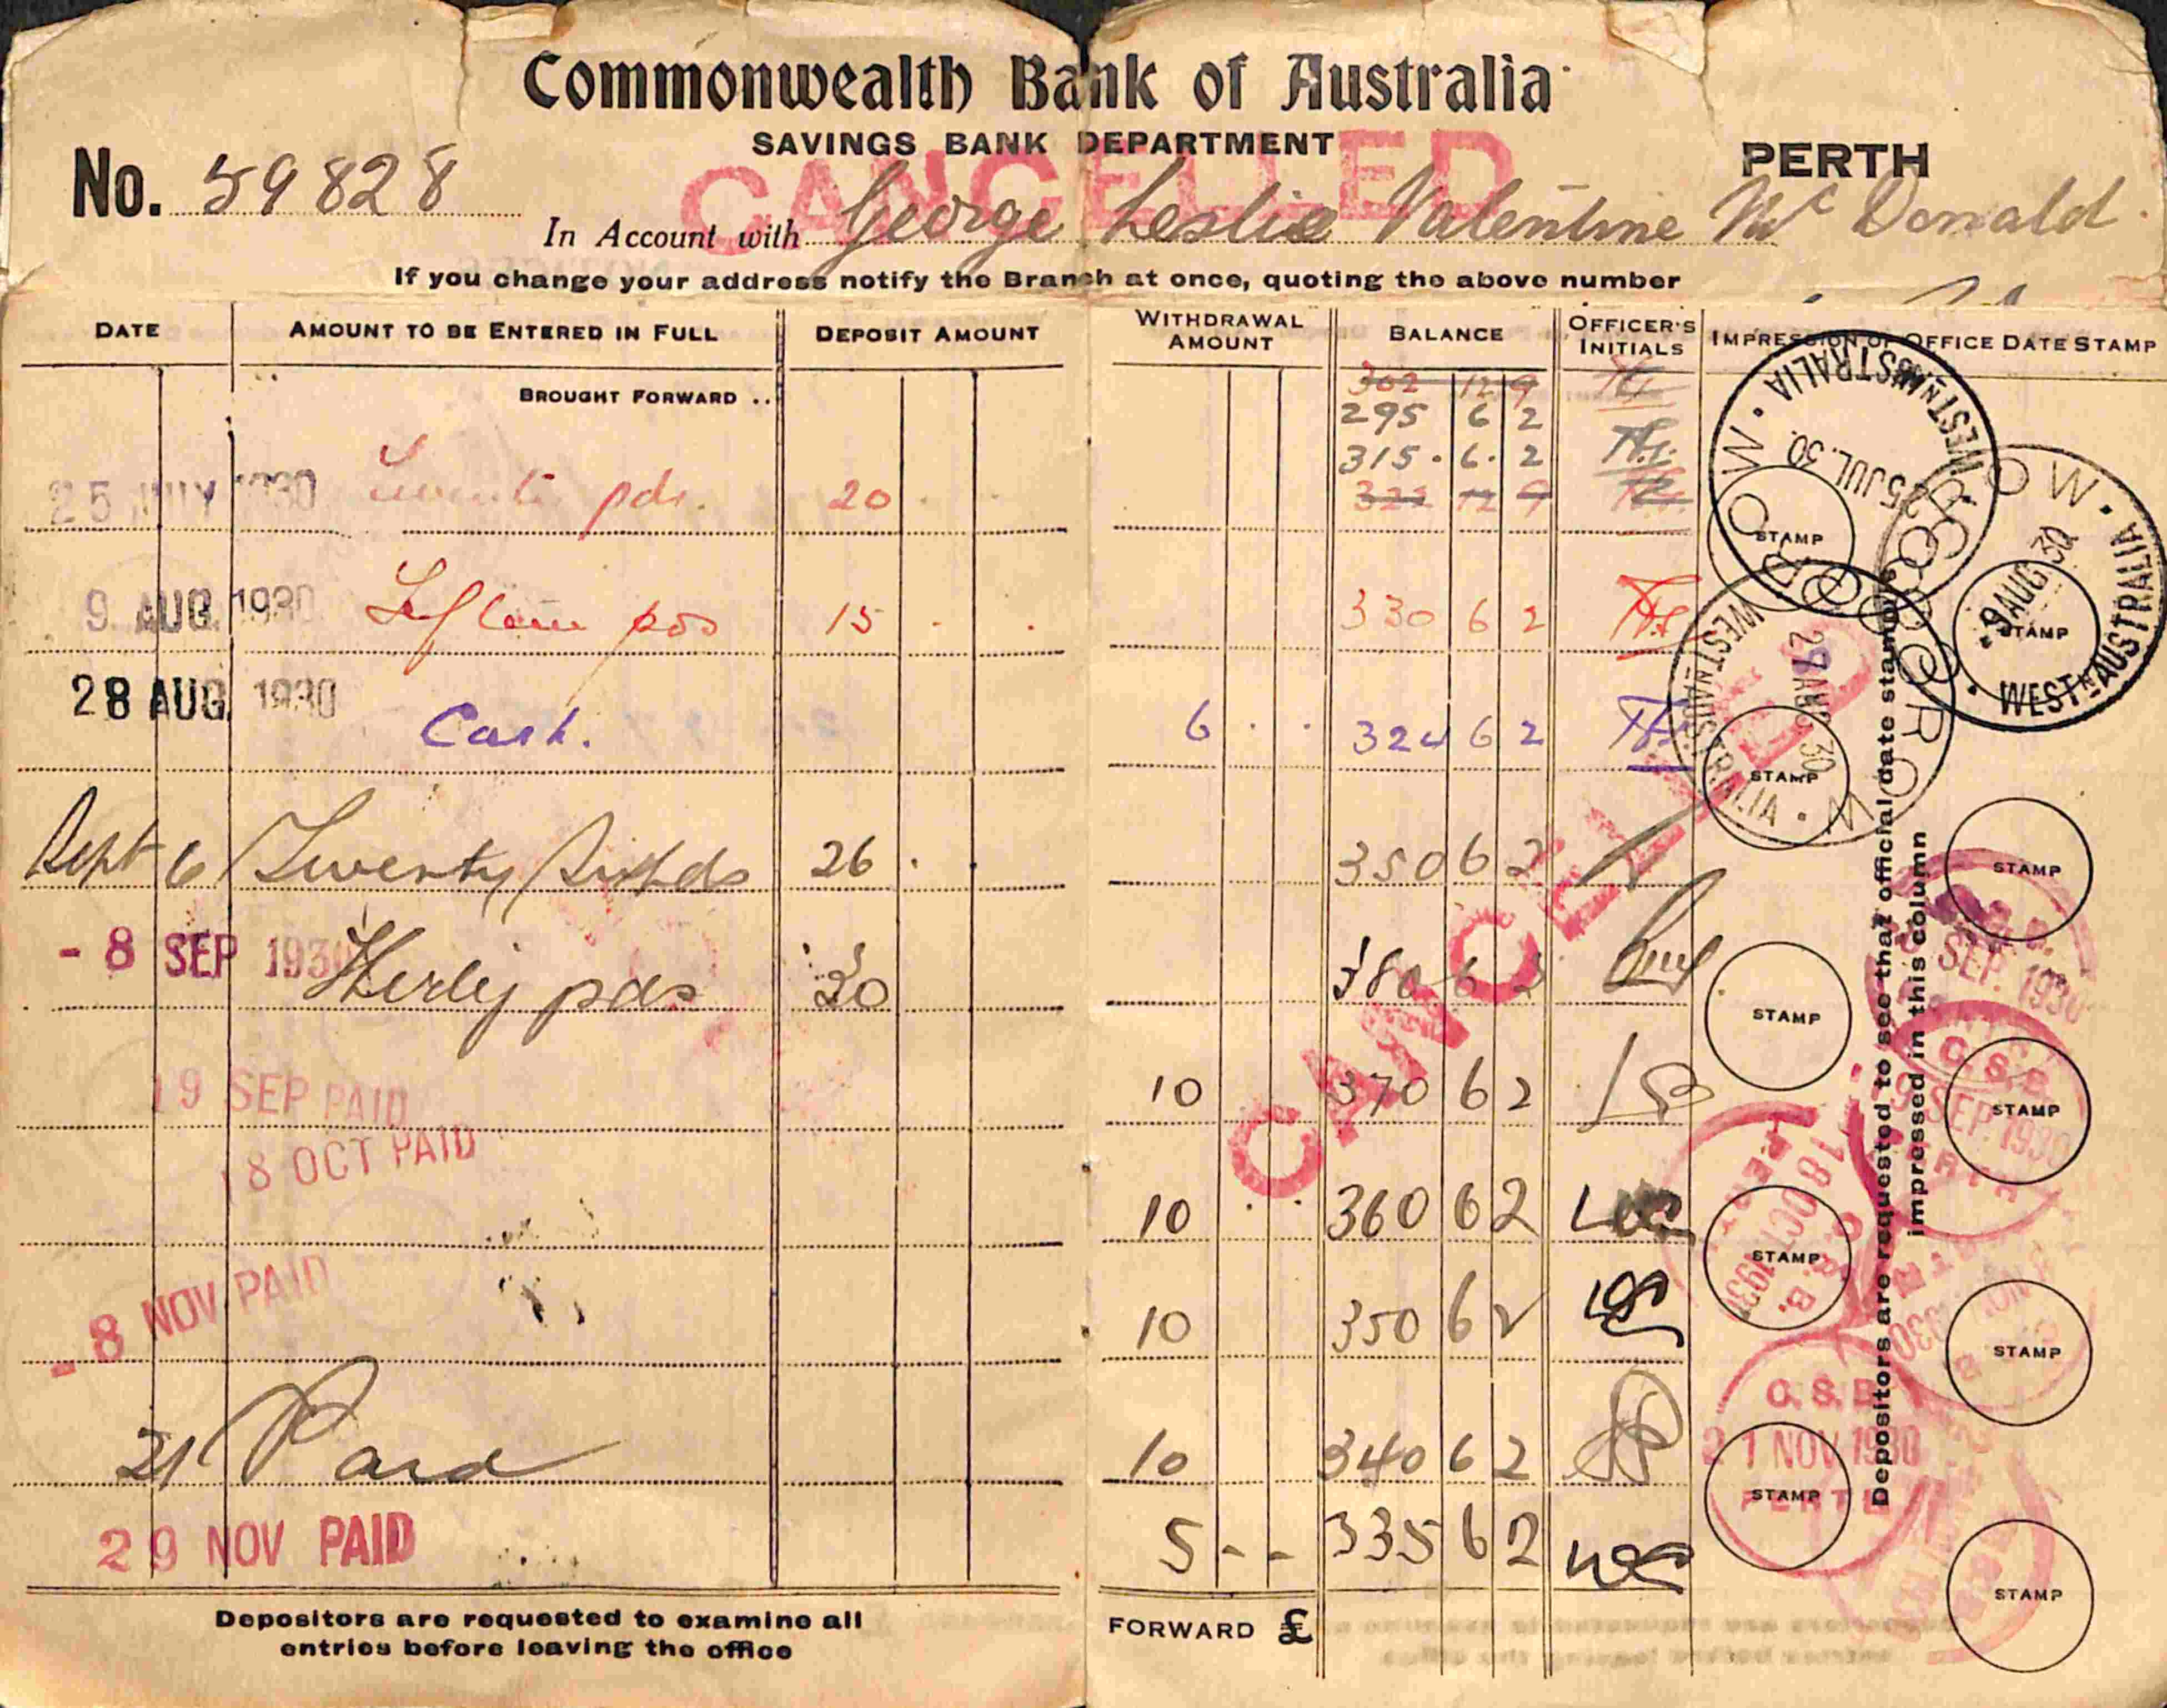 Commonwealth Bank of Australia
SAVINGS BANK DEPARTMENT
PERTH
CANCELLED
No. 59828
In Account with George Leslie Valentine Mc Donald
If you change your address notify the Branch at once, quoting the above number
DATE AMOUNT TO BE ENTERED IN FULL DEPOSIT AMOUNT WITHDRAWAL AMOUNT BALANCE OFFICER'S INITIALS IMPRESSION OF OFFICE DATE STAMP
BROUGHT FORWARD .. 302 12 9
295 6 2
315 . 6 . 2
25 JULY 1930 Twenty pds. 20 322 12 9
9 AUG 1930 15 330 6 2
28 AUG 1930 Cash. 6 324 6 2
Sept 6 Twenty Six pds 26 350 6 2
- 8 SEP 1930 pds 30 380 6 2
19 SEP PAID 10 370 6 2
18 OCT PAID 10 360 6 2
- 8 NOV PAID 10 350 6 2
21 Paid 10 340 6 2
29 NOV PAID 5 - - 335 6 2
FORWARD £
Depositors are requested to examine all
entries before leaving the office
CANCELLED
Depositors are requested to see that official date stamp is
impressed in this column
WESTN AUSTRALIA
25 JUL. 30
9 AUG 30
WESTN AUSTRALIA
WESTN AUSTRALIA
27 AUG 30
STAMP
STAMP
STAMP
STAMP
STAMP
STAMP
STAMP
STAMP
STAMP
STAMP
SEP. 1930
C. S. B.
SEP. 1930
18 OCT 1930
C. S. B.
21 NOV 1930
PERTH